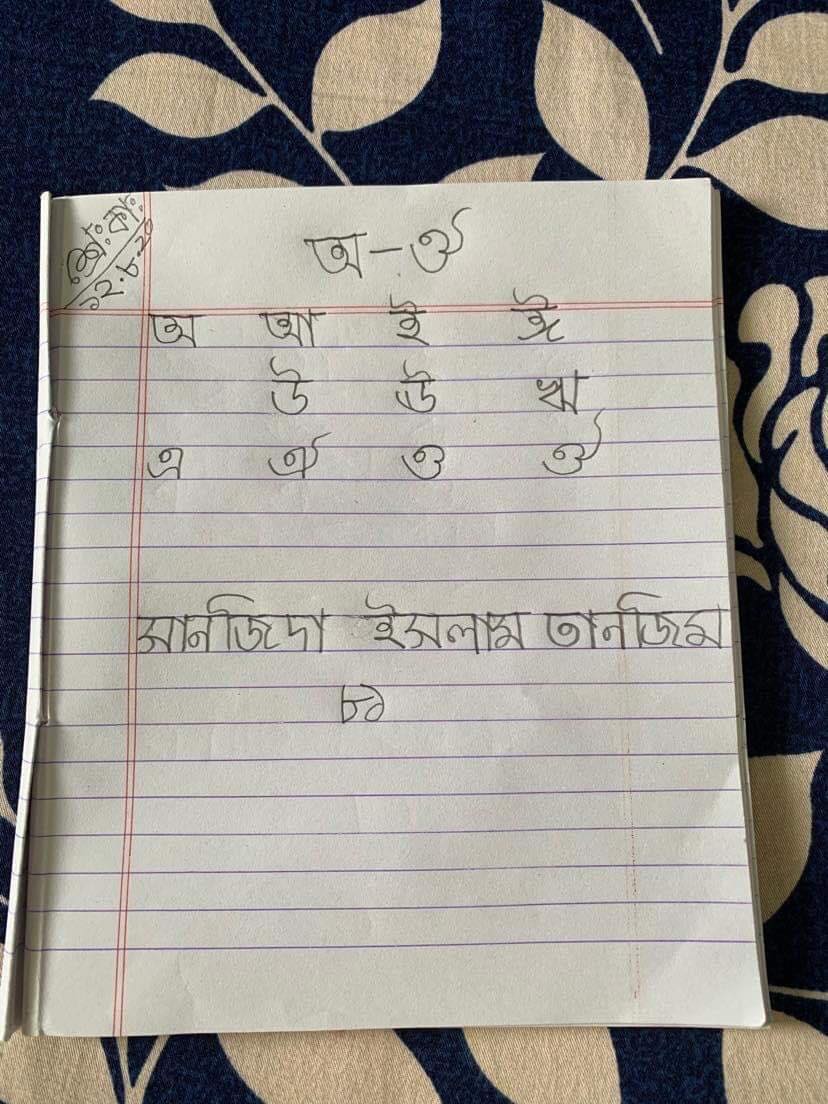 শ্রে: কা:
১২.৮.২০
অ-ঔ
অ আ ই ঈ
উ ঊ ঋ
এ ঐ ও ঔ
সানজিদা ইসলাম তানজিম
৮৯